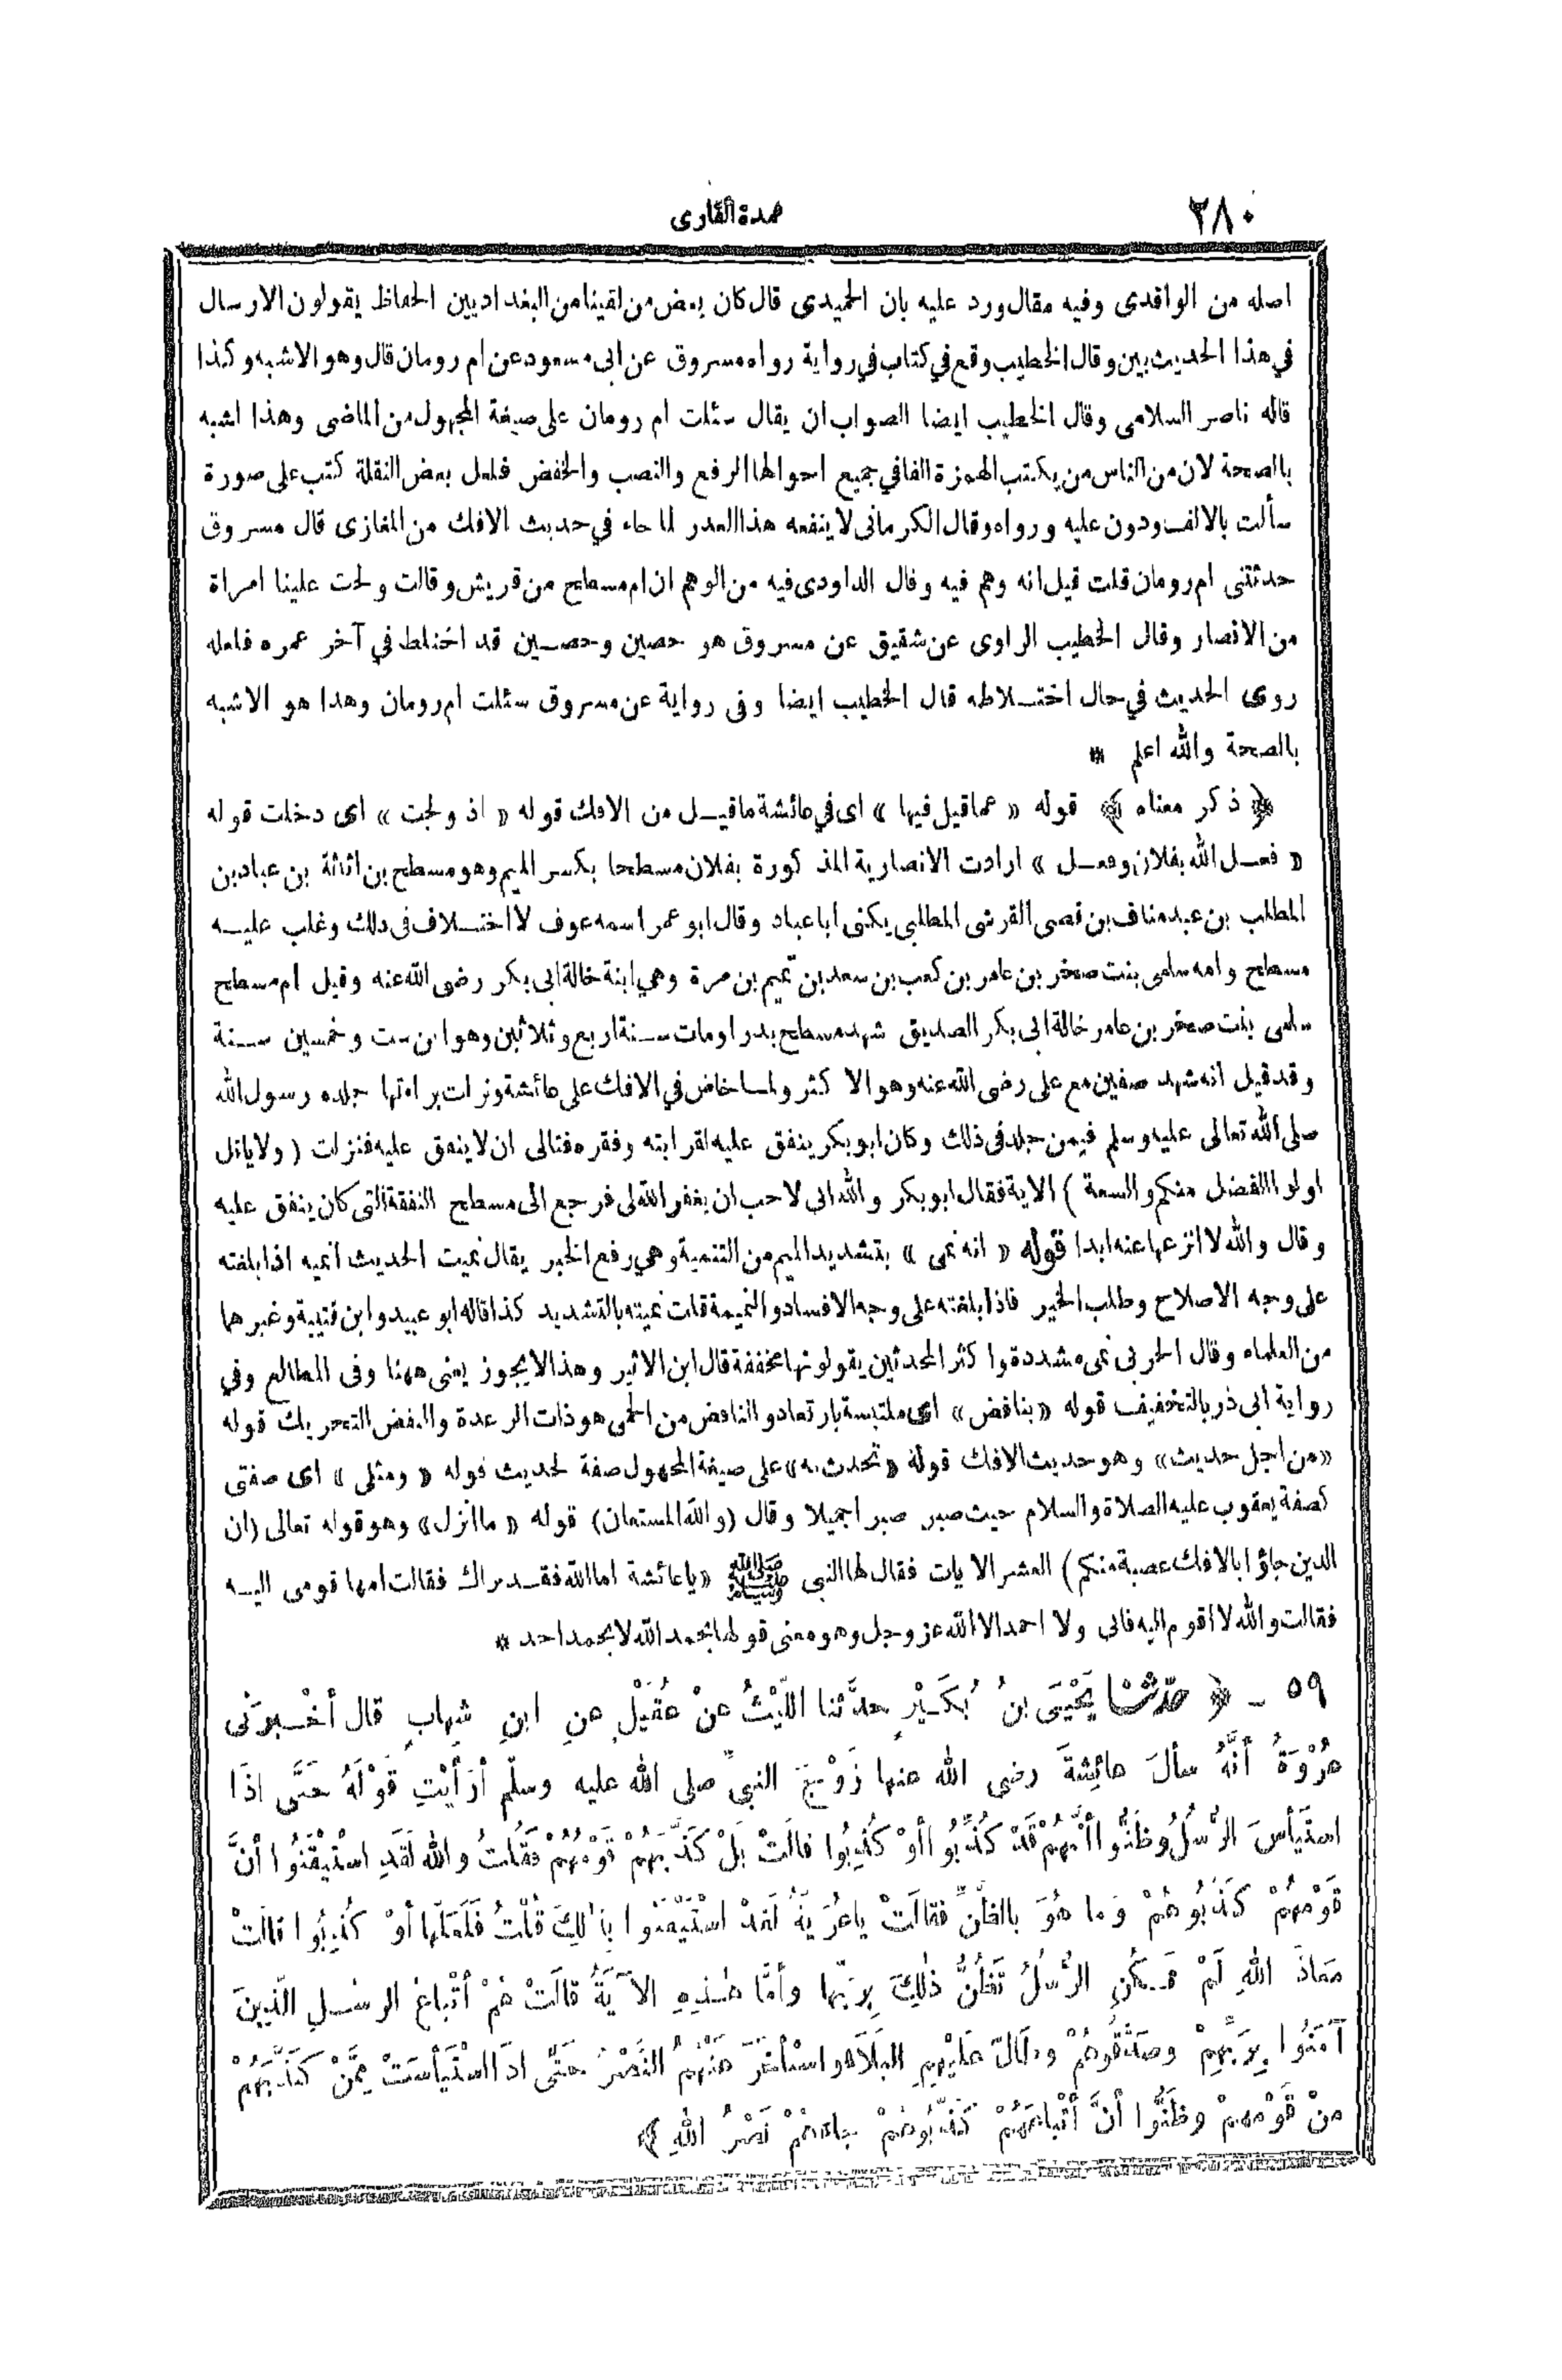 ٢٨٠
عمدة القارى
اصله من الواقدى وفيه مقال ورد عليه بان الحميدى قال كان بعض من لقينا من البغداديين الحفاظ يقولون الارسال
في هذا الحديث بين وقال الخطيب وقع في كتاب في رواية رواه مسروق عن ابى مسعود عن ام رومان قال وهو الاشبه وكذا
قاله ناصر السلامى وقال الخطيب ايضا الصواب ان يقال سئلت ام رومان على صيغة المجهول من الماضى وهذا اشبه
بالصحة لان من الناس من يكتب الهمزة الفا في جميع احوالها الرفع والنصب والخفض فلعل بعض النقلة كتب على صورة
سألت بالالف ودون عليه ورواه وقال الكرمانى لا ينفعه هذا العذر لما جاء في حديث الافك من المغازى قال مسروق
حدثتنى ام رومان قلت قيل انه وهم فيه وقال الداودى فيه من الوهم ان ام مسطح من قريش وقالت ولجت علينا امراة
من الانصار وقال الخطيب الراوى عن شقيق عن مسروق هو حصين وحصين قد اختلط في آخر عمره فلعله
روى الحديث في حال اختلاطه قال الخطيب ايضا وفى رواية عن مسروق سئلت ام رومان وهذا هو الاشبه
بالصحة والله اعلم *
﴿ ذكر معناه ﴾ قوله « عما قيل فيها » اى في عائشة ما قيل من الافك قوله « اذ ولجت » اى دخلت قوله
« فعل الله بفلان وفعل » ارادت الانصارية المذكورة بفلان مسطحا بكسر الميم وهو مسطح بن اثاثة بن عباد بن
المطلب بن عبد مناف بن قصى القرشى المطلبى يكنى ابا عباد وقال ابو عمر اسمه عوف لا اختلاف فى ذلك وغلب عليه
مسطح وامه سلمى بنت صخر بن عامر بن كعب بن سعد بن تميم بن مرة وهي ابنة خالة ابى بكر رضى الله عنه وقيل ام مسطح
سلمى بنت صخر بن عامر خالة ابى بكر الصديق شهد مسطح بدرا ومات سنة اربع وثلاثين وهو ابن ست وخمسين سنة
وقد قيل انه شهد صفين مع على رضى الله عنه وهو الا كثر ولما خاض في الافك على عائشة ونزلت براءتها جلده رسول الله
صلى الله تعالى عليه وسلم فيمن جلد فى ذلك وكان ابو بكر ينفق عليه لقرابته وفقره فتالى ان لا ينفق عليه فنزلت ( ولا ياتل
اولوا الفضل منكم والسعة ) الاية فقال ابو بكر والله انى لاحب ان يغفر الله لى فرجع الى مسطح النفقة التى كان ينفق عليه
وقال والله لا انزعها عنه ابدا قوله « انه نمى » بتشديد الميم من التنمية وهي رفع الخبر يقال نميت الحديث انميه اذا بلغته
على وجه الاصلاح وطلب الخير فاذا بلغته على وجه الافساد والنميمة قلت نميته بالتشديد كذا قاله ابو عبيد وابن قتيبة وغيرهما
من العلماء وقال الحربى نمى مشددة واكثر المحدثين يقولونها مخففة قال ابن الاثير وهذا لا يجوز يعنى ههنا وفى المطالع وفي
رواية ابى ذر بالتخفيف قوله «بنافض» اى ملتبسة بارتعاد والنافض من الحمى هو ذات الرعدة والنفض التحريك قوله
«من اجل حديث» وهو حديث الافك قوله «تحدث به» على صيغة المجهول صفة لحديث قوله « ومثلى » اى صفتى
كصفة يعقوب عليه الصلاة والسلام حيث صبر صبرا جميلا وقال (والله المستعان) قوله « ما انزل» وهو قوله تعالى (ان
الذين جاؤا بالافك عصبة منكم) العشر الايات فقال لها النبى ﷺ «يا عائشة اما الله فقد براك فقالت امها قومى اليه
فقالت والله لا اقوم اليه فانى ولا احمد الا الله عز وجل وهو معنى قولها بحمد الله لا بحمد احد *
٥٩ - ﴿ حدّثنا يَحْيَى بنُ بُكَيْرٍ حدَّثنا اللّيْثُ عنْ عُقَيْلٍ عنِ ابنِ شِهابٍ قال أخْبرَنى
عُرْوَةُ أنَّهُ سألَ عائِشةَ رضى الله عنها زَوْجَ النبىِّ صلى الله عليه وسلّم أرَأيْتِ قَوْلَهُ حَتَّى اذَا
اسْتَيْأسَ الرُّسُلُ وظَنُّوا أنَّهُمْ قَدْ كُذِّبُوا أوْ كُذِبُوا قالَتْ بَلْ كَذَّبَهُمْ قَوْمُهُمْ فَقُلْتُ والله لَقَدِ اسْتَيْقَنُوا أنَّ
قَوْمَهُمْ كَذَّبُوهُمْ وَما هُوَ بالظَّنِّ فقالَتْ ياعُرَيَّةُ لَقَدْ اسْتَيْقَنُوا بِذَلِكَ قُلْتُ فَلَعَلَّها أوْ كُذِبُوا قالَتْ
مَعاذَ اللهِ لَمْ تَكُنِ الرُّسُلُ تَظُنُّ ذَلِكَ بِرَبِّها وأمَّا هذِهِ الآيَةُ قالَتْ هُمْ أتْباعُ الرسُلِ الَّذِينَ
آمَنُوا بِرَبِّهِمْ وصَدَّقُوهُمْ وطالَ عَلَيْهِمِ البَلَاءُ واسْتَأخَرَ عَنْهُمُ النَّصْرُ حَتَّى اذَا اسْتَيْأسَتْ مِمَّنْ كَذَّبَهُمْ
مِنْ قَوْمِهِمْ وظَنُّوا أنَّ أتْباعَهُمْ كَذَّبُوهُمْ جاءَهُمْ نَصْرُ اللهِ ﴾